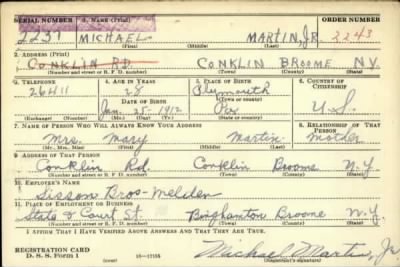 SERIAL NUMBER 1. NAME (Print) ORDER NUMBER
2237 MICHAEL MARTIN, JR. 2243
(First) (Middle) (Last)
2. ADDRESS (Print)
CONKLIN RD. CONKLIN BROOME N.Y.
(Number and street or R. F. D. number) (Town) (County) (State)
3. TELEPHONE 4. AGE IN YEARS 5. PLACE OF BIRTH 6. COUNTRY OF CITIZENSHIP
26411 28 Plymouth
DATE OF BIRTH (Town or county)
Jan. 25 1912 Pa. U.S.
(Exchange) (Number) (Mo.) (Day) (Yr.) (State or country)
7. NAME OF PERSON WHO WILL ALWAYS KNOW YOUR ADDRESS 8. RELATIONSHIP OF THAT PERSON
Mrs. Mary Martin Mother
(Mr., Mrs., Miss) (First) (Middle) (Last)
9. ADDRESS OF THAT PERSON
Conklin Rd. Conklin Broome N.Y.
(Number and street or R. F. D. number) (Town) (County) (State)
10. EMPLOYER'S NAME
Sisson Bros-Welden
11. PLACE OF EMPLOYMENT OR BUSINESS
State & Court St. Binghamton Broome N.Y.
(Number and street or R. F. D. number) (Town) (County) (State)
I AFFIRM THAT I HAVE VERIFIED ABOVE ANSWERS AND THAT THEY ARE TRUE.
REGISTRATION CARD
D. S. S. Form 1 (over) 16—17105 Michael Martin, Jr.
(Registrant's signature)